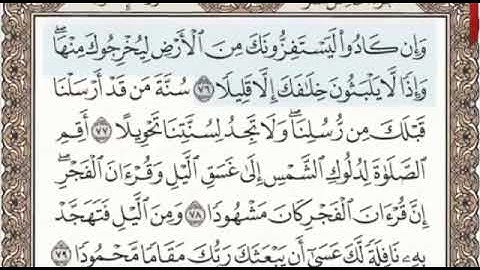 وَإِن كَادُوا۟ لَيَسْتَفِزُّونَكَ مِنَ ٱلْأَرْضِ لِيُخْرِجُوكَ مِنْهَا ۖ
وَإِذًا لَّا يَلْبَثُونَ خِلَٰفَكَ إِلَّا قَلِيلًا ٧٦ سُنَّةَ مَن قَدْ أَرْسَلْنَا
قَبْلَكَ مِن رُّسُلِنَا ۖ وَلَا تَجِدُ لِسُنَّتِنَا تَحْوِيلًا ٧٧ أَقِمِ
ٱلصَّلَوٰةَ لِدُلُوكِ ٱلشَّمْسِ إِلَىٰ غَسَقِ ٱلَّيْلِ وَقُرْءَانَ ٱلْفَجْرِ ۖ
إِنَّ قُرْءَانَ ٱلْفَجْرِ كَانَ مَشْهُودًا ٧٨ وَمِنَ ٱلَّيْلِ فَتَهَجَّدْ
بِهِۦ نَافِلَةً لَّكَ عَسَىٰٓ أَن يَبْعَثَكَ رَبُّكَ مَقَامًا مَّحْمُودًا ٧٩